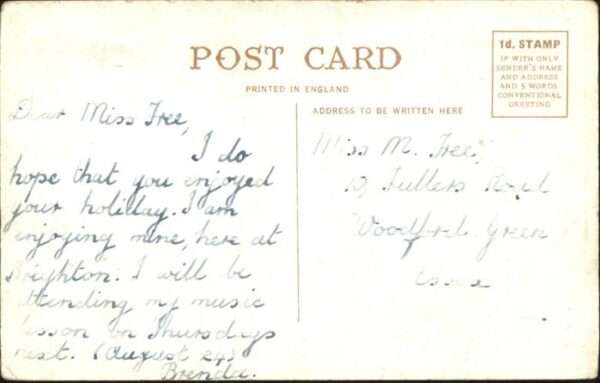 POST CARD
PRINTED IN ENGLAND
ADDRESS TO BE WRITTEN HERE
1d. STAMP
IF WITH ONLY
SENDER'S NAME
AND ADDRESS
AND 5 WORDS
CONVENTIONAL
GREETING
Dear Miss Free,
I do
hope that you enjoyed
your holiday. I am
enjoying mine, here at
Brighton. I will be
attending my music
lesson on Thursdays
next. (August 24)
Brenda.
Miss M. Free,
19, Fullers Road
Woodford Green
Essex